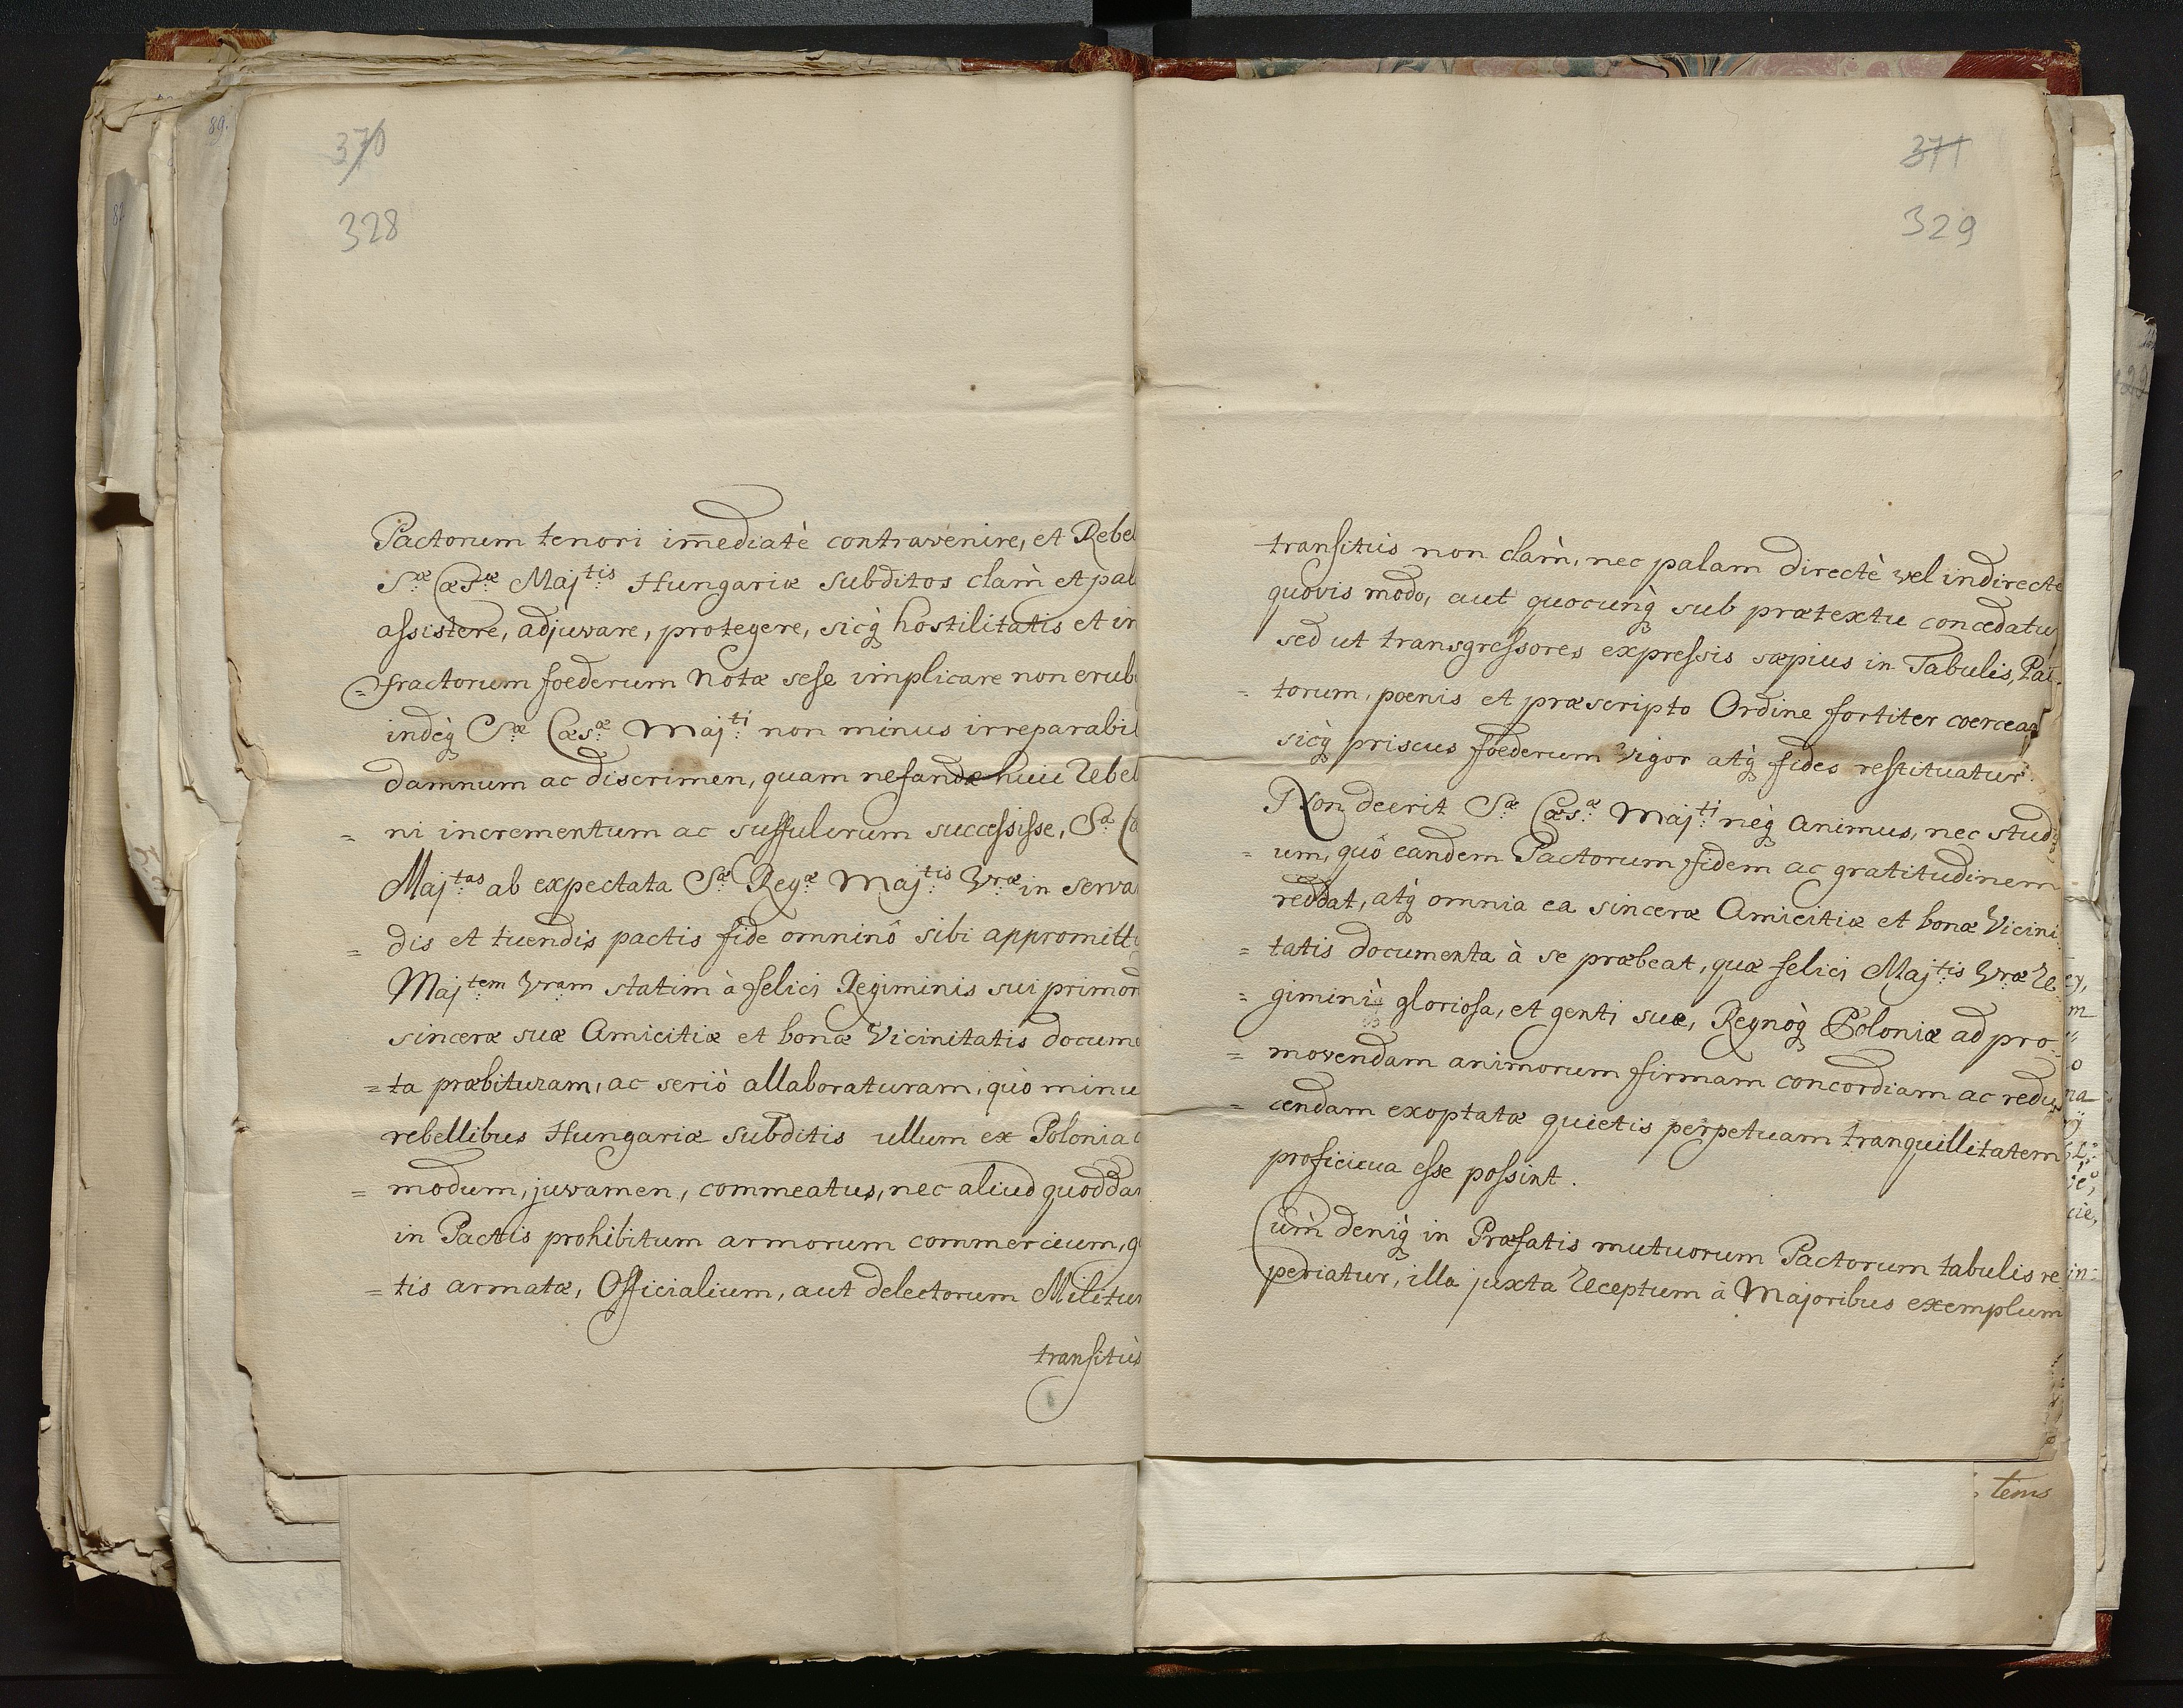 370
328
Pactorum tenori im̄ediatè contravenire, et Rebel
Sæ Cæsæ Majtis Hungariæ subditos clam̀ et pal
assistere, adjuvare, protegere, sicq̀ hostilitatis et in
=fractorum foederum Notæ sese implicare non erub
indèq̀ Sæ Cæsæ Majti non minus irreparabil
damnum ac discrimen, quam nefandæ huic Rebel
= ni incrementum ac suffulcrum successisse, Sa Ca
Majtas ab expectata Sæ Regæ Majtis Vræ in serva
= dis et tuendis pactis fide omninô sibi appromitt
Majtem Vram statim à felici Regiminis sui primor
sinceræ suæ Amicitiæ et bonæ Vicinitatis docume
= ta præbituram, ac seriò allaboraturam, quò minu
rebellibus Hungariæ Subditis ullum ex Polonia c
= modum, juvamen, commeatus, nec aliud quoddam
in Pactis prohibitum armorum commercium, g
= tis armatæ, Officialium, aut delectorum Militum
transitùs
371
329
transitùs non clam̀, nec palam directè vel indirecte
quovis modo, aut quocunq̀ sub prætextu concedatu
sed ut transgressores expressis sæpius in Tabulis, Pac
= torum, poenis et præscripto Ordine fortiter coercea
sicq̀ priscus foederum Vigor atq̀ fides restituatur.
Non deerit Sæ Cæsæ Majti neq̀ Animus, nec studi
= um, quô eandem Pactorum fidem ac gratitudinem
reddat, atq̀ omnia ea sinceræ Amicitiæ et bonæ Vicini
= tatis documenta à se præbeat, quæ felici Majtis Vræ Re
= gimini gloriosa, et genti suæ, Regnòq̀ Poloniæ ad pro
= movendam animorum firmam concordiam ac redu
= cendam exoptatæ quietis perpetuam tranquillitatem
proficua esse possint.
Cùm deniq̀ in Præfatis mutuorum Pactorum tabulis re
periatur, illa juxta receptum à Majoribus exemplum
tems